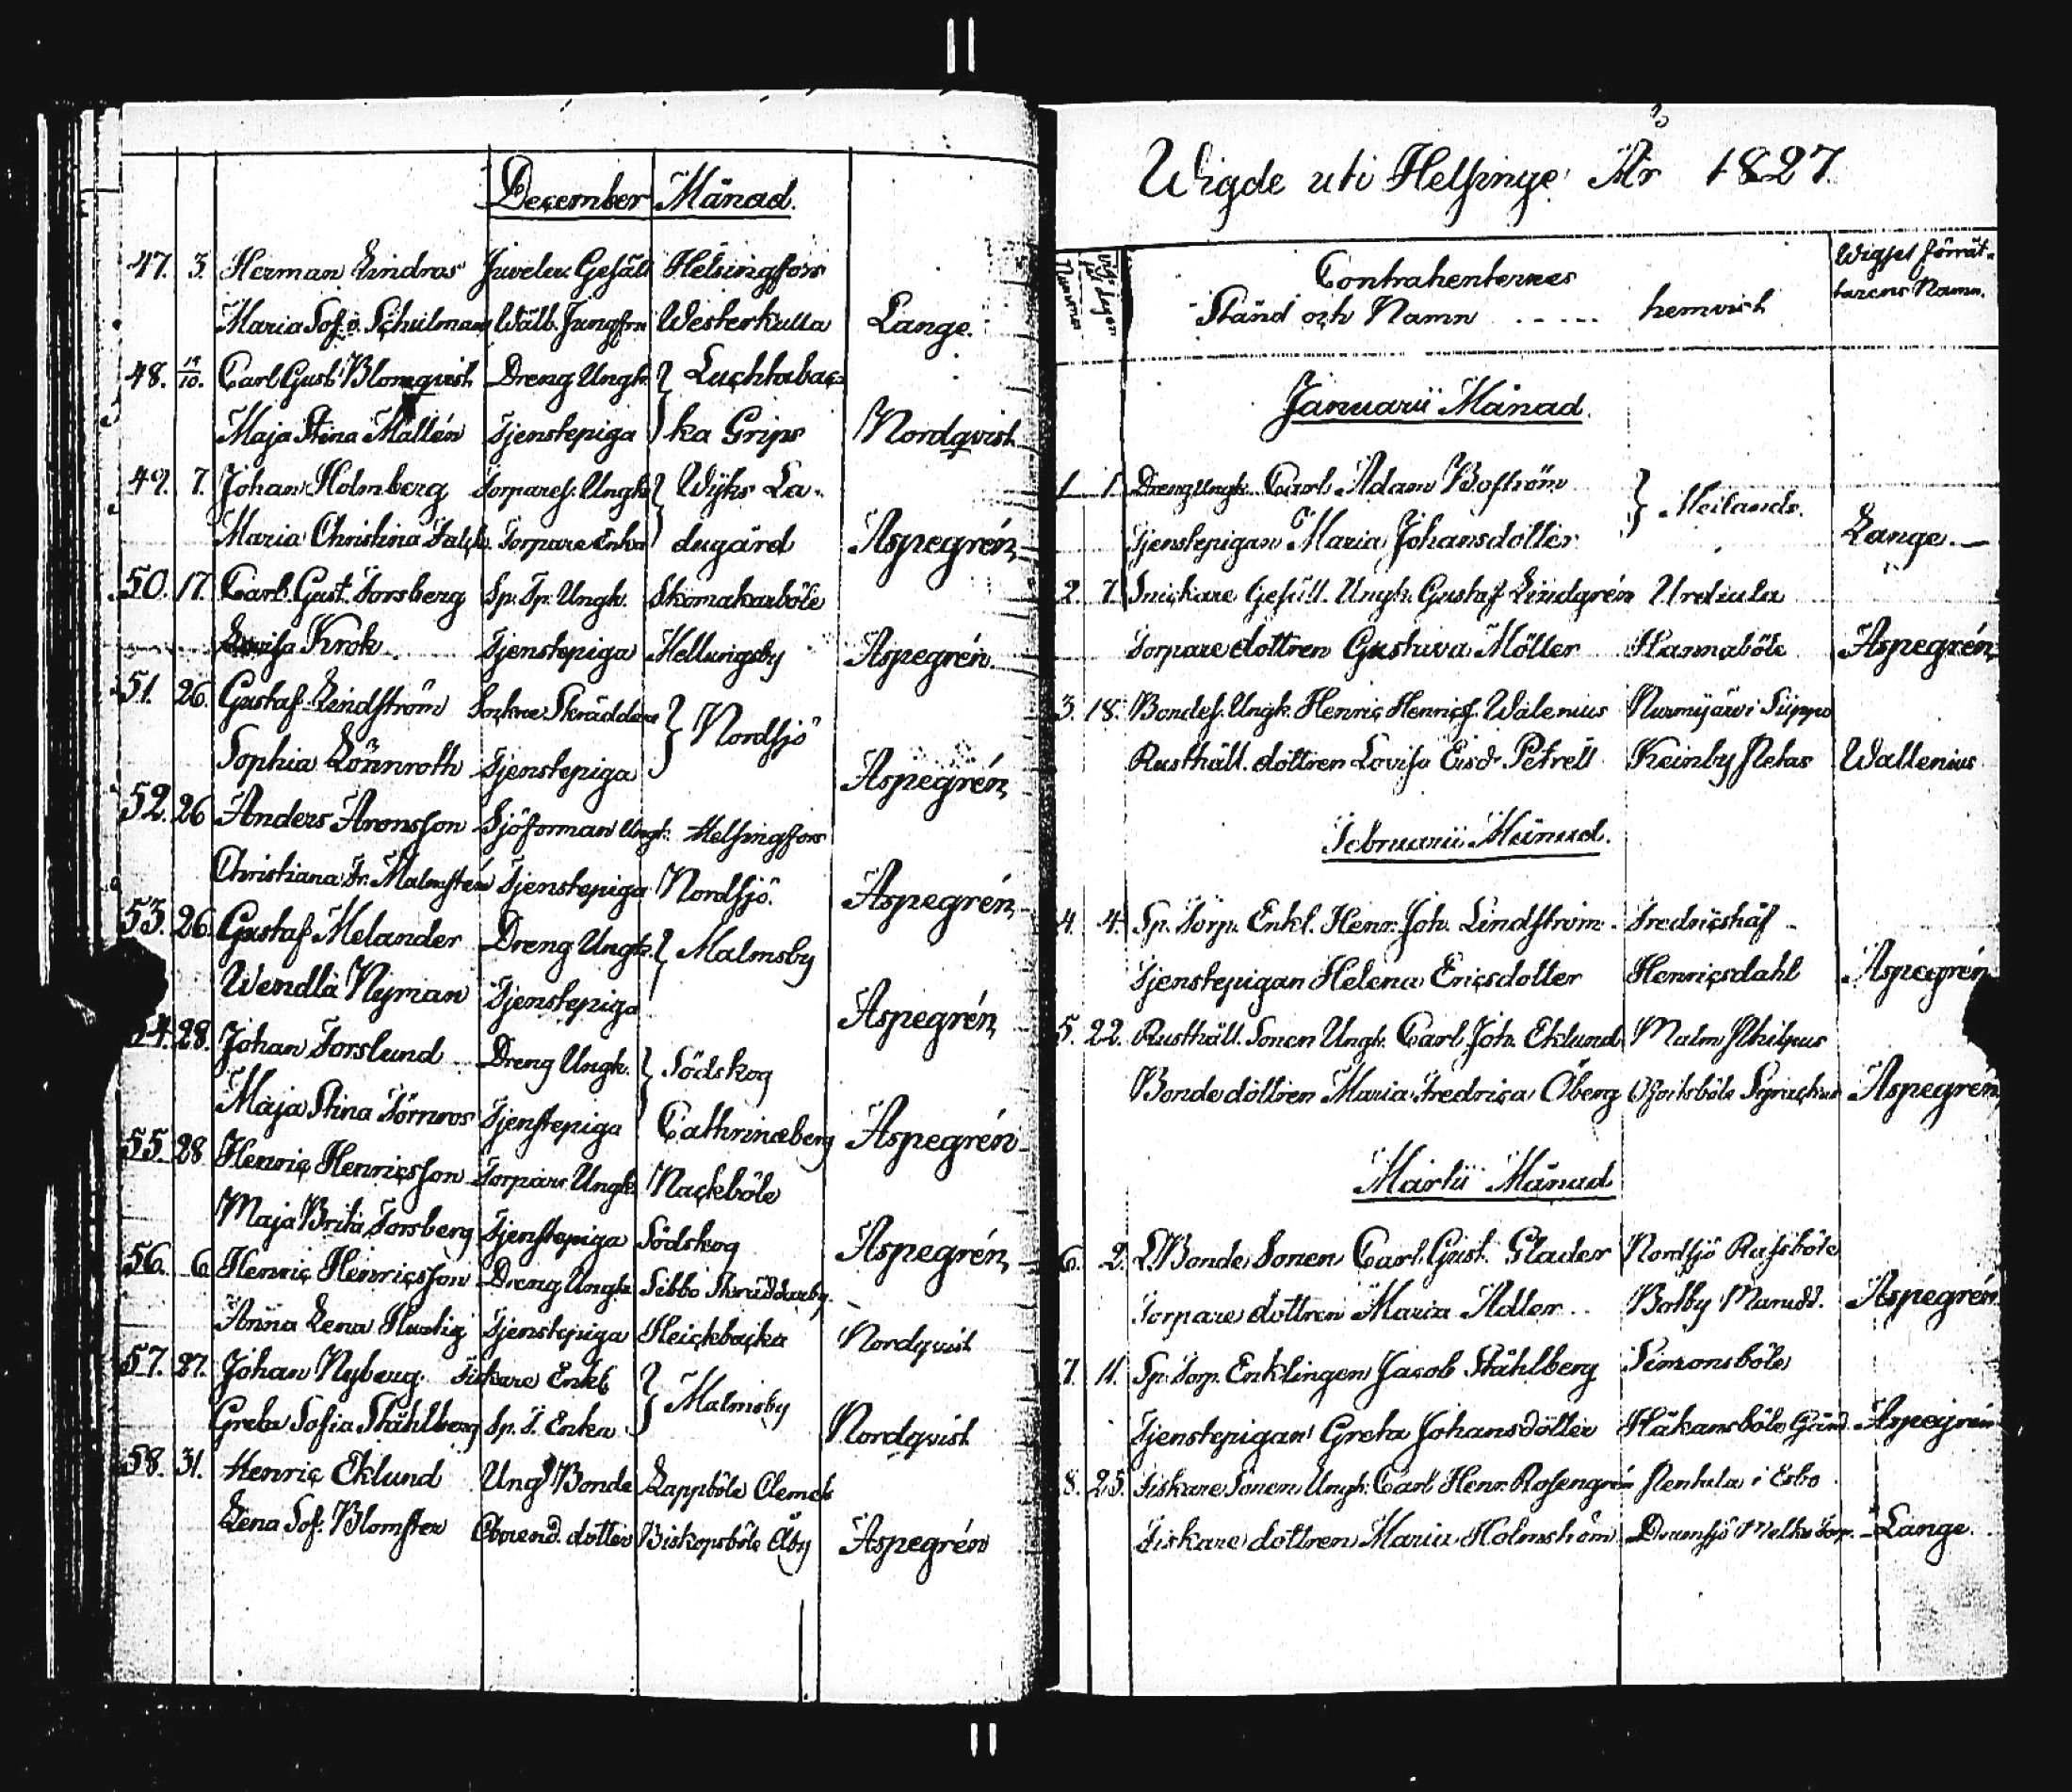 December Månad.
47. 3. Herman Lindros Juveler. Gesäll Helsingfors
Maria Sof. Schulman Wälb. Jungfru Westerkulla Lange.
48. 19/10. Carl Gust. Blomqvist Dreng Ungk. } Luchtabac-
Maja Stina Mallén Tjenstepiga } ka Grips Nordqvist
49. 7. Johan Holmberg Torpares. Ungk. } Wijks La-
Maria Christina Falck. Torpare Enka } dugård Aspegrén
50. 17. Carl. Gust. Forsberg Sp. Tp. Ungk. Skomakarböle
Lovisa Krok Tjenstepiga Hellungsby Aspegrén.
51. 26. Gustaf Lindström Sockne Skräddare } Nordsjö
Sophia Lönnroth Tjenstepiga Aspegrén
52. 26 Anders Aronsson Sjöforman Ungk. Helsingfors
Christiana Fr. Malmstén Tjenstepiga Nordsjö. Aspegrén
53. 26. Gustaf Melander Dreng Ungk. } Malmsby
Wendla Nyman Tjenstepiga Aspegrén
54. 28. Johan Forslund Dreng Ungk. } Södskog
Maja Stina Törnros Tjenstepiga Cathrineberg Aspegrén
55. 28 Henric Henricsson Torpare Ungk. Nackböle
Maja Brita Forsberg Tjenstepiga Södskog Aspegrén
56. 6 Henric Henricsson Dreng Ungk. Sibbo Skräddarby.
Anna Lena Hurtig Tjenstepiga Heickbacka Nordqvist
57. 27. Johan Nyberg. Fiskare Enkl. } Malmsby
Greta Sofia Ståhlberg Sp. T. Enka Nordqvist
58. 31. Henric Eklund Ung Bonde Lappböle Clemets
Lena Sof. Blomster Arrend. dotter Biskopsböle Åby Aspegrén
Wigde uti Helsinge År 1827.
Nummer
Vigs dagen
Contrahenternes
Stånd och Namn ..... hemvist
Wigsel förrät-
tarens Namn.
Januarii Månad.
1 1. Dreng Ungk. Carl Adam Boström } Meilands.
Tjenstepigan Maria Johansdotter Lange.
2. 7. Snickare Gesäll. Ungk. Gustaf Lindgrén
Torpare dottren Gustava Möller Hannaböle Aspegrén
3. 18. Bondes. Ungk. Henric Henricss. Walenius Nurmijärvi
Rusthåll. dottren Lovisa Petrell Wallenius
Februarii Månad.
4. 4. Sp. Torp. Enkl. Henr. Joh. Lindström. Fredricshäf
Tjenstepigan Helena Ericsdotter Henricsdahl Aspegrén
5. 22. Rusthåll. Sonen Ungk. Carl Joh. Eklund Malm
Bonde dottren Maria Fredrica Öberg Aspegrén
Martii Månad
6. 2. Bonde Sonen Carl. Gust. Glader Nordsjö
Torpare dottren Maria Adler Botby Aspegrén
7. 11. Sp. Torp. Enklingen Jacob Ståhlberg Simonsböle
Tjenstepigan Greta Johansdotter Håkansböle Gård Aspegrén
8. 25. Fiskare Sonen Ungk. Carl Henr. Rosengrén Hentula i Esbo
Fiskare dottren Maria Holmström Torp. Lange.